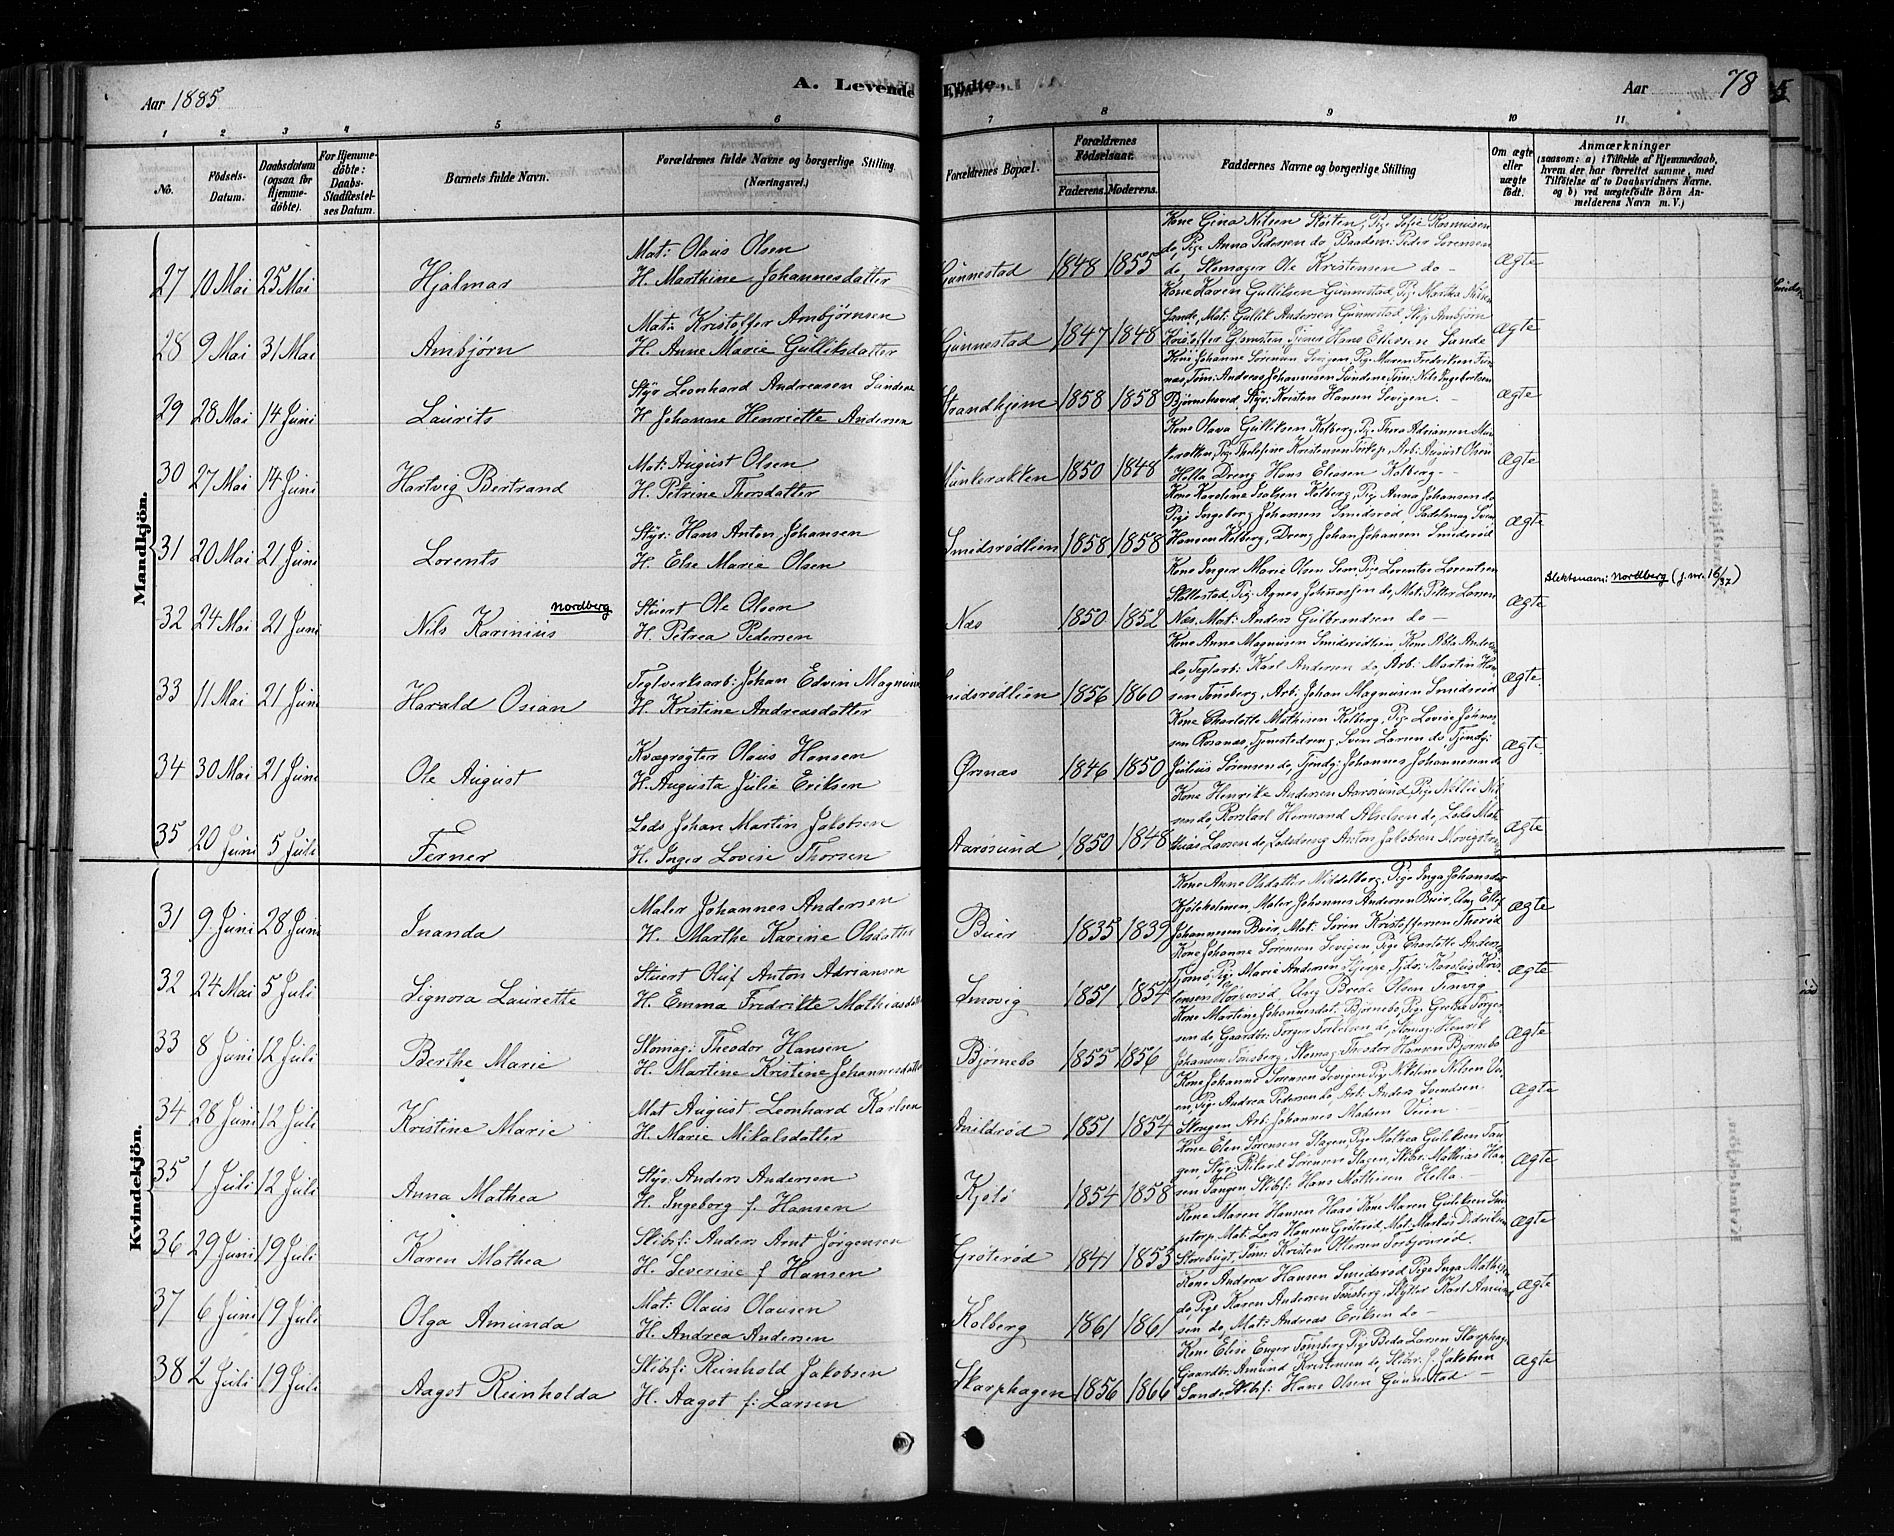 Aar 1885
A. Levende Födte.
Aar 78
1 2 3 4 5 6 7 8 9 10 11
No.
Födsels-Datum.
Daabsdatum (ogsaa for Hjemmedöbte).
For Hjemmedöbte: Daabs-Stadfæstelses Datum.
Barnets fulde Navn.
Forældrenes fulde Navne og borgerlige Stilling (Næringsvei.)
Forældrenes Bopæl.
Forældrenes Födselsaar.
Faderens. Moderens.
Faddernes Navne og borgerlige Stilling
Om ægte eller uægte födt.
Anmærkninger (saasom: a) i Tilfælde af Hjemmedaab, hvem der har forrettet samme, med Tilföielse af to Daabsvidners Navne, og b) ved uægtefödte Börn Anmelderens Navn m. V.)
Mandkjön.
27 10 Mai 25 Mai Hjalmar Mat: Olaus Olsen
H. Marthine Johannesdatter Gunnestad 1848 1855 Kone Gina Nilsen Skoiten, Pige Sofie Rasmussen
do, Pige Anna Pedersen do Baadsm: Peder Sörensen
do, Skomager Ole Kristensen do – Ægte
28 9 Mai 31 Mai Ambjörn Mat: Kristoffer Ambjörnsen
H. Anne Marie Gulliksdatter Gunnestad 1847 1848 Kone Karen Gulliksen Gunnestad, Pige Martha Nilsen
Sande, Mat: Gullik Andersen Gunnestad, Skip. Ambjörn
Kristoffer Tjener Hans Ellefsen Sande Ægte
29 28 Mai 14 Juni Laurits Styr Leonhard Andreasen Sundene
H Johanne Henriette Andersen Strandhjem 1858 1858 Kone Johanne Sörensen Sevigen, Pige Maren Fredriksen
Töm: Andreas Johannesen Sundene Töm: Nils Ingebertsen
Björnebrod, Styr: Kristen Hansen Sevigen. – Ægte
30 27 Mai 14 Juni Hartvig Bertrand Mat: August Olsen
H. Petrine Thorsdatter Munkerakken 1850 1848 Kone Olava Gulliksen Kolberg, Pige Thora Adriansen
Pige Josefine Kristensen Torkop, Arb: August Olsen
Hella Dreng Hans Eliasen Kolberg – Ægte
31 20 Mai 21 Juni Lorents Styr: Hans Anton Johansen
H. Else Marie Olsen Smidsrödlien 1858 1858 Kone Karoline Isaksen Kolberg, Pige Anna Johansen do
Pige Ingeborg Johansen Smidsröd, Sadelmag Sven
Hansen Kolberg, Dreng Johan Johansen Smidsröd Ægte
32 24 Mai 21 Juni Nils Karinius Nordberg Stuert Ole Olsen
H. Petrea Pedersen Næs 1850 1852 Kone Inger Marie Olsen Sem, Pige Lorentse Lorentsen
Skallestad, Pige Agnes Johannesen do, Mat: Petter Larsen
Næs, Mat: Anders Gulbrandsen do – Ægte Slektsnavn: Nordberg (j.nr. 16/37)
33 11 Mai 21 Juni Harald Osian Teglverksarb: Johan Edvin Magnusen
H. Kristine Andreasdatter Smidsrödlien 1856 1860 Kone Anne Magnusen Smidsrödlien, Kone Abla Andersen
do, Teglarb: Karl Andersen do, Arb: Martin Hansen
Tönsberg, Arb: Johan Magnusen Smidsröd Ægte
34 30 Mai 21 Juni Ole August Kvægrögter Olaus Hansen
H. Augusta Julie Eriksen Örsnæs 1846 1850 Kone Charlotte Mathisen Kolberg, Pige Lovise Johannessen
Rosanæs, Tjenestedreng Sven Larsen do, Tjendg:
Julius Sörensen do, Tjendg: Johannes Johannesen do Ægte
35 20 Juni 5 Juli Ferner Lods Johan Martin Jakobsen
H. Inger Lovise Thorsen Aarösund 1850 1848 Kone Henrike Andersen Aarösund, Pige Nellie Nilsen
do, Rorskarl Hermand Akselsen do, Lods Mathias
Larsen do, Lodsdreng Anton Jakobsen Ægte
Kvindekjön.
31 9 Juni 28 Juni Inanda Maler Johannes Andersen
H. Marthe Karine Olsdatter Buer 1835 1839 Kone Anne Olsdatter Middelborg, Pige Inga Johansdat
Kjöleholmen, Maler Johannes Andersen Buer, Ung Ellef
Johannesen Buer, Mat: Sören Kristoffersen Thoröd Ægte
32 24 Mai 5 Juli Signora Laurette Stuert Oluf Anton Adriansen
H. Emma Fredrikke Mathiasdatter Smovig 1851 1854 Kone Johanne Sörensen Sevigen Pige Charlotte Andersen
Tjömö, Pige Marie Andersen Skjerpe, Karelius Kristensen
Ung Brede Olsen Finvig Ægte
33 8 Juni 12 Juli Berthe Marie Skomag: Theodor Hansen
H. Martine Kristine Johannesdatter Björnebo 1855 1856 Kone Martine Johannesdat. Björnebo, Pige Grethe Torgersen
do, Gaardbr: Torger Torkelsen do, Skomag: Henrik
Johansen Tönsberg, Skomag Theodor Hansen Björnebo Ægte
34 28 Juni 12 Juli Kristine Marie Mat August Leonhard Karlsen
H. Marie Mikalsdatter Smildröd 1851 1854 Kone Johanne Sörensen Sevigen Pige Nikoline Nilsen
Pige Andrea Pedersen do, Arb: Anders Svendsen
Skogen Arb: Johannes Madsen Veien – Ægte
35 1 Juli 12 Juli Anna Mathea Styr: Anders Andersen
H. Ingeborg f. Hansen Kjölö 1854 1858 Kone Elen Sörensen Slagen, Pige Mathea Guliksen Tangen,
Styr: Rikard Sörensen Slagen, Skibsr: Mathias Hansen
Tangen, Skibsf: Hans Mathisen Hella. Ægte
36 29 Juni 19 Juli Karen Mathea Skibsf: Anders Arnt Jörgensen
H. Severine f Hansen Gröteröd 1841 1853 Kone Maren Hansen Haas Kone Maren Guliksen
Mat: Lars Hansen Gröteröd, Mat: Markus Didriksen
Storebugt, Töm: Kristen Ollesen Torbjönröd. Ægte
37 6 Juni 19 Juli Olga Amunda Mat: Olaus Olausen
H. Andrea Andersen Kolberg 1861 1861 Kone Andrea Hansen Smidsröd, Pige Inga Mathisen
do, Pige Karen Andersen Tönsberg, Skytter Karl Amundsen
do, Mat: Andreas Eriksen do – Ægte
38 2 Juli 19 Juli Aagot Reinholda Skibsf: Reinhold Jakobsen
H. Aagot f: Larsen Skarphagen 1856 1866 Kone Elise Enger Tönsberg Pige Beda Larsen Skarphag.
Gaardbr: Amund Kristensen do, Skibsr: J. Jakobsen
Sande Skibsf: Hans Olsen Gunnestad – Ægte